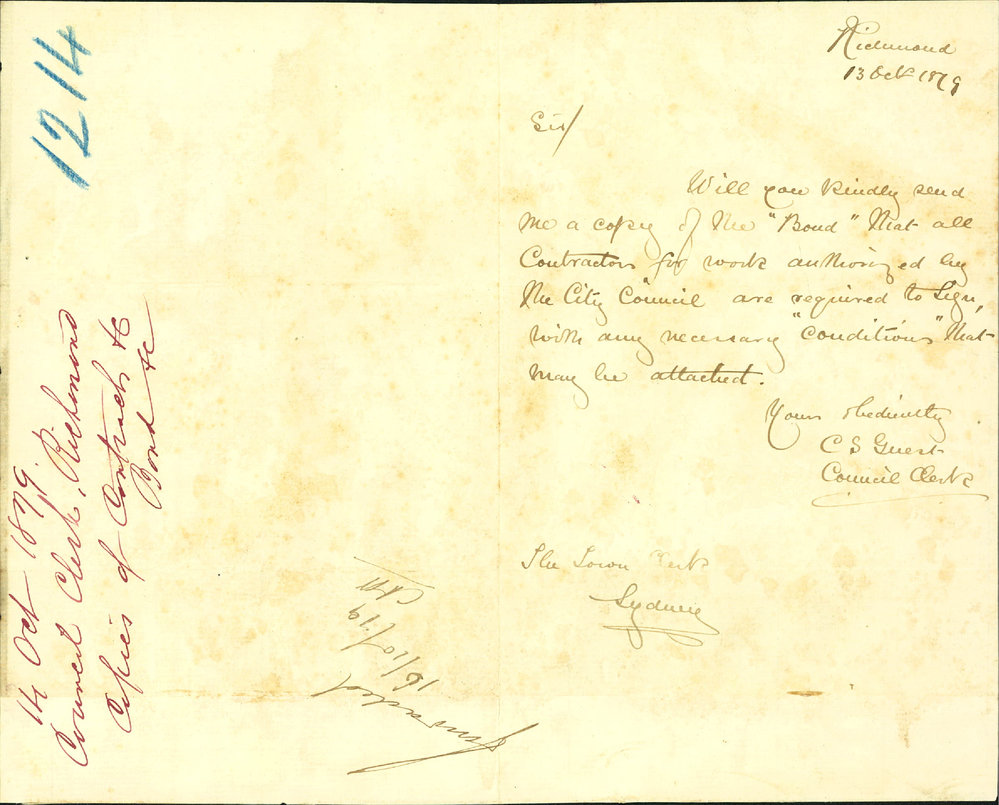 Richmond
13 Oct 1879
Sir/
Will you kindly send
me a copy of the "Bond" that all
Contractors for work authorized by
the City Council are required to sign,
with any necessary "conditions" that
may be attached.
Yours obediently
C S Guest
Council Clerk
The Town Clerk
Sydney
1214
14 Oct 1879.
Council Clerk, Richmond
Copies of Contracts &c
Bond &c
Forwarded
16/10/79